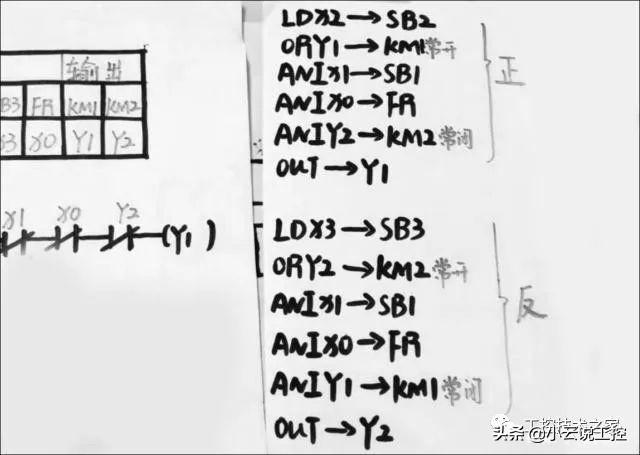 输出
B3 FR KM1 KM2
X3 X0 Y1 Y2
X1 X0 Y2
(Y1)
LDX2→SB2
ORY1→KM1常开
ANIX1→SB1
ANIX0→FR
ANIY2→KM2常闭
OUT→Y1
正
LDX3→SB3
ORY2→KM2常开
ANIX1→SB1
ANIX0→FR
ANIY1→KM1常闭
OUT→Y2
反
工控技术之家
头条@小云说工控